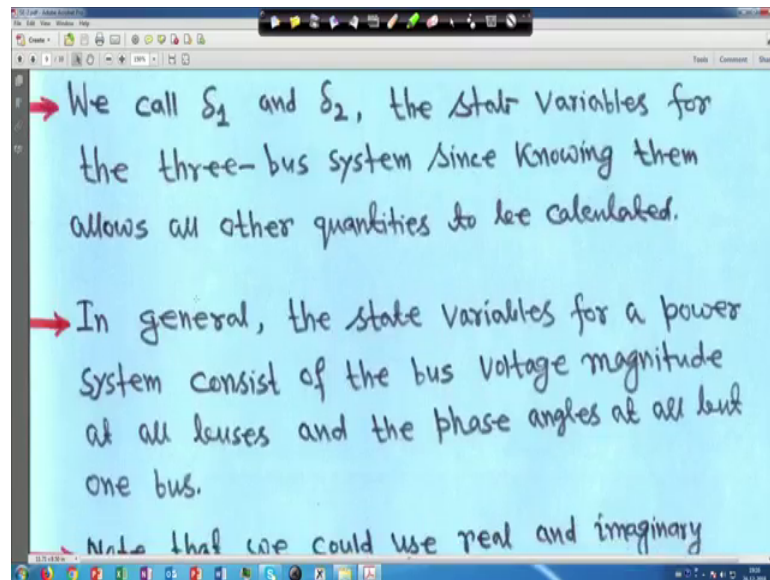 SE-2.pdf - Adobe Acrobat Pro
File Edit View Window Help
Create
9 / 10
150%
Tools Comment
We call δ1 and δ2, the state variables for
the three-bus system since knowing them
allows all other quantities to be calculated.
In general, the state variables for a power
system consist of the bus voltage magnitude
at all buses and the phase angles at all but
one bus.
Note that we could use real and imaginary